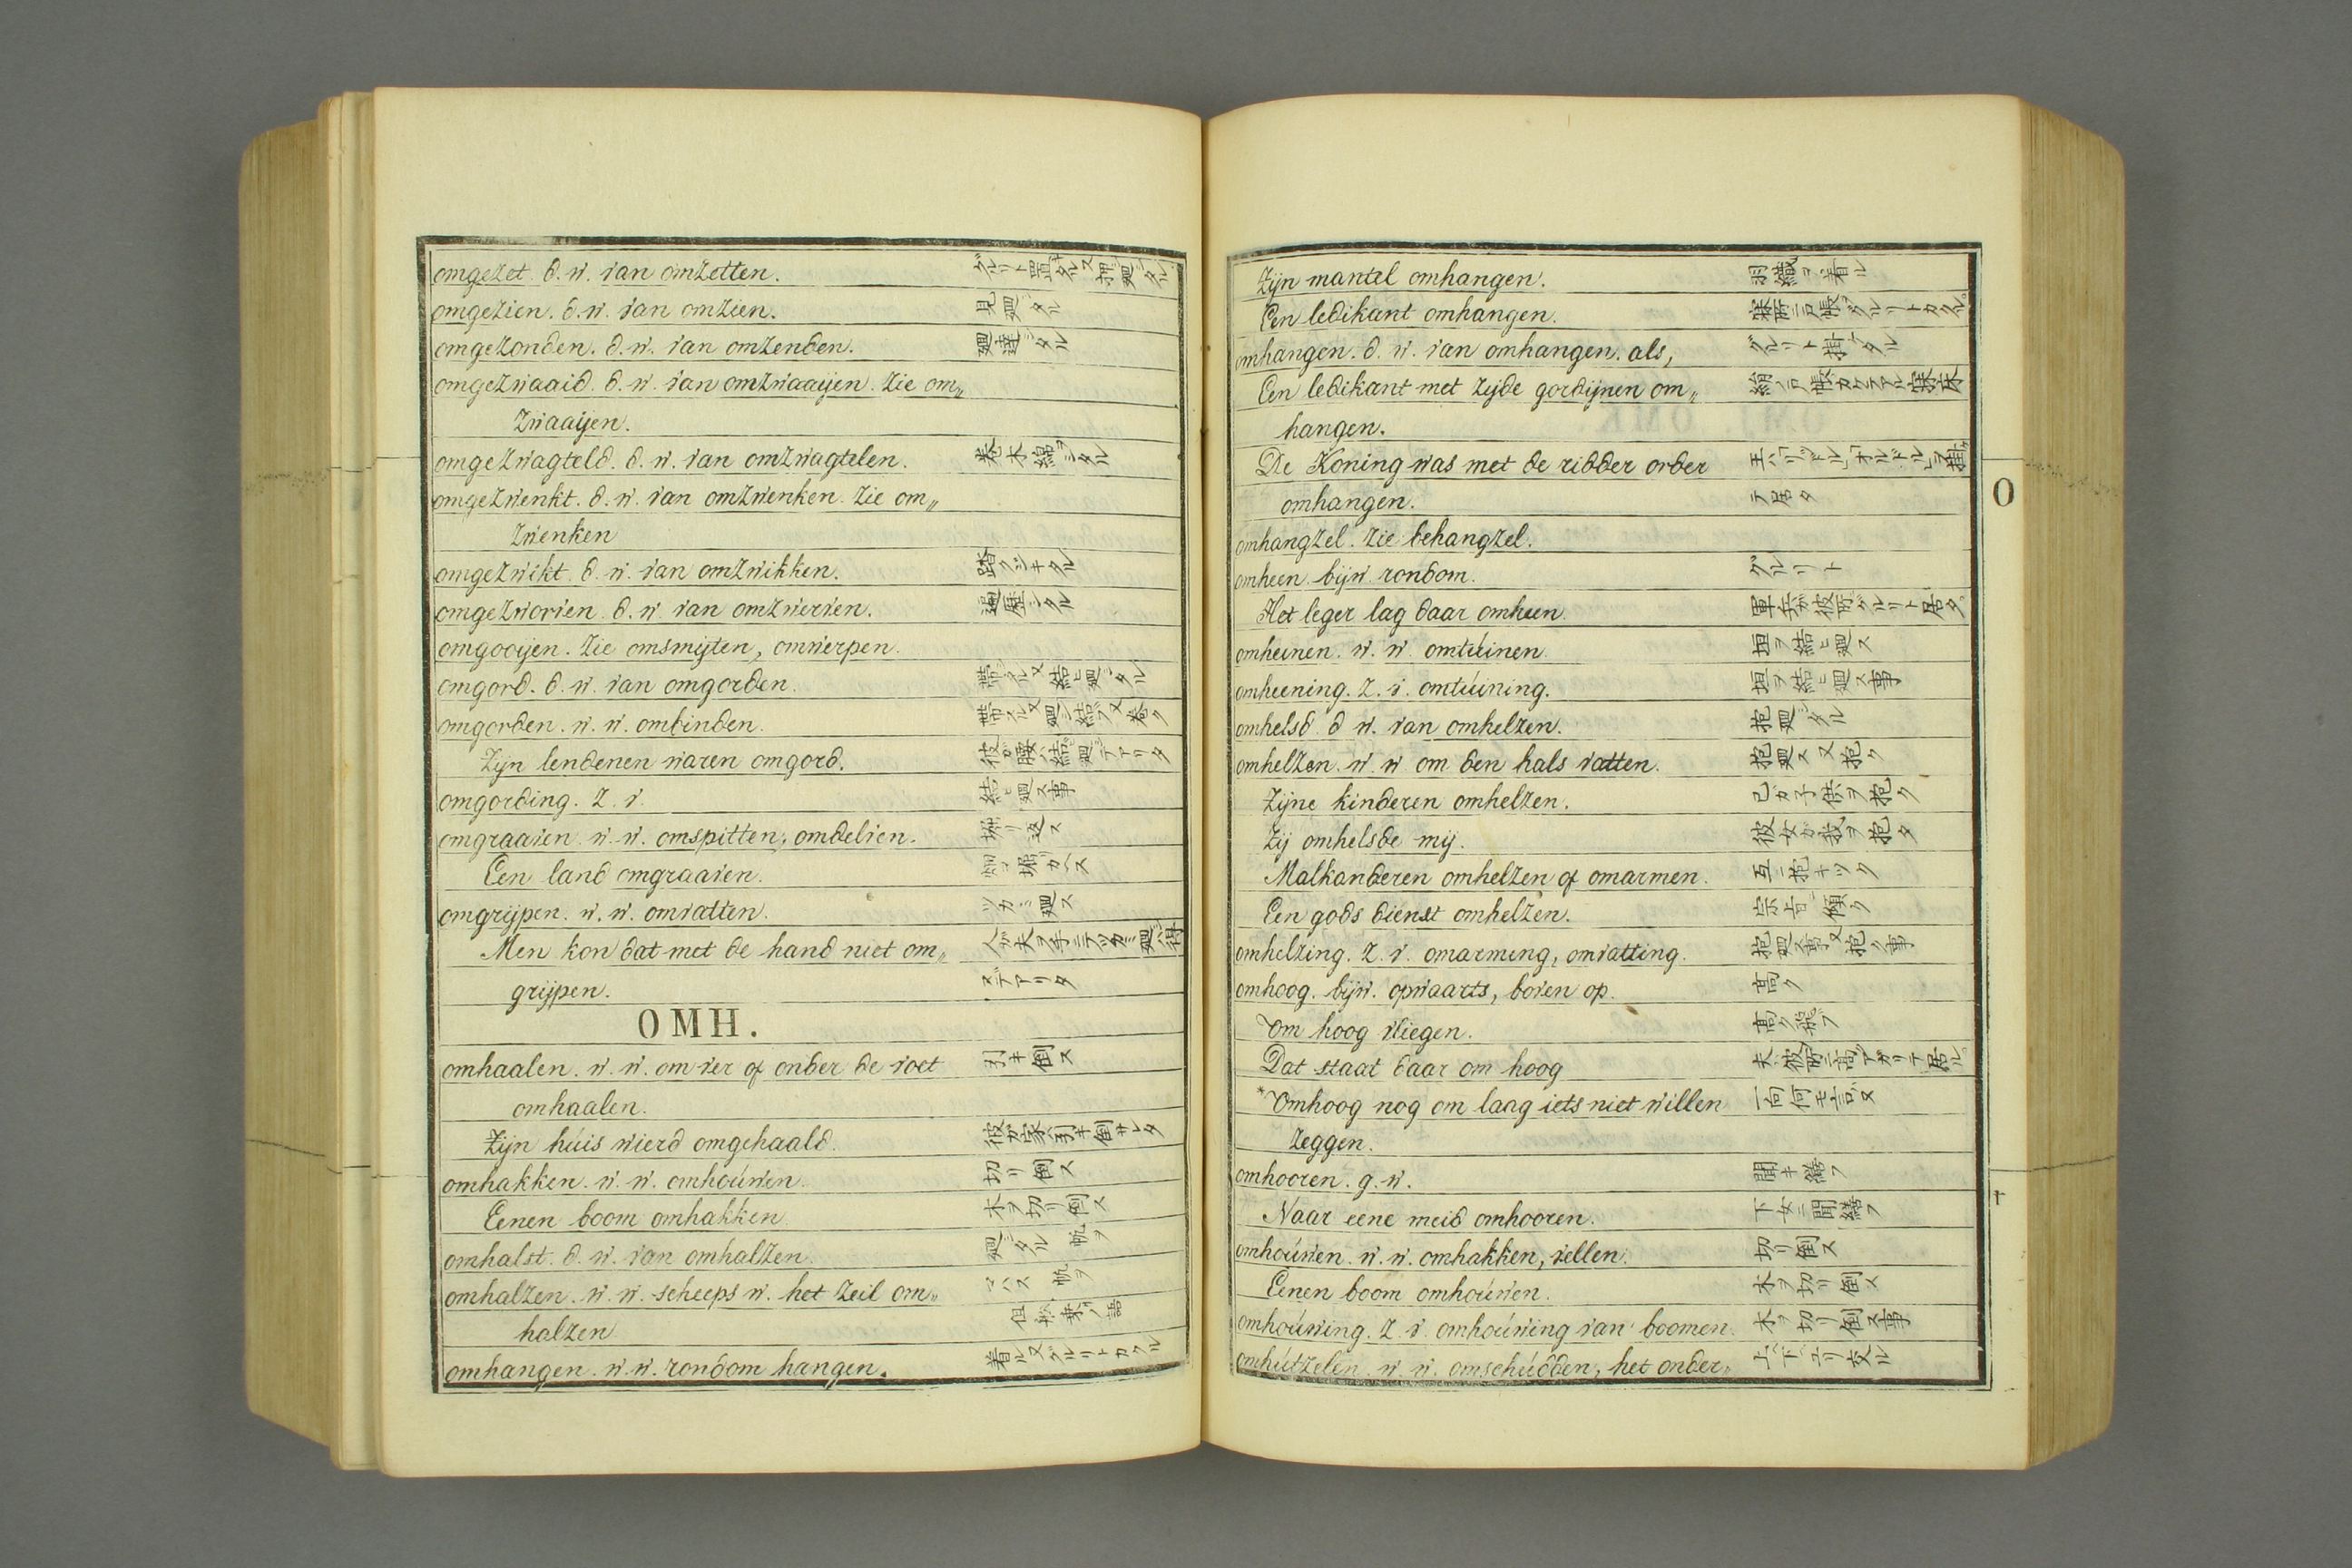 omgezet. d. w. van omzetten. グルリト置キタル 又 押廻シタル
omgezien. d. w. van omzien. 見廻シタル
omgezonden. d. w. van omzenden. 廻達シタル
omgezwaaid. d. w. van omzwaaijen. zie om„
zwaaijen.
omgezwagteld. d. w. van omzwagtelen. 巻木綿ヲシタル
omgezwenkt. d. w. van omzwenken. zie om„
zwenken
omgezwikt. d. w. van omzwikken. 踏クジキタル
omgezworven. d. w. van omzwerven. 遍歴シタル
omgooijen. zie omsmijten, omwerpen.
omgord. d. w. van omgorden. 帯シタル 又 結ヒ廻シタル
omgorden. w. w. ombinden. 帯スル 又 廻シ結フ 又 巻ク
Zijn lendenen waren omgord. 彼ガ腰ハ結ヒ廻シテアリタ
omgording. z. v. 結ヒ廻ス事
omgraaven. w. w. omspitten, omdelven. 堀リ返ス
Een land omgraaven.
omgrijpen. w. w. omvatten. ツカミ廻ス
Men kon dat met de hand niet om„ 人ガ夫ヲ手ニテツカミ廻シ得
grijpen. ズデアリタ
OMH.
omhaalen. w. w. om ver of onder de voet 引キ倒ス
omhaalen.
Zijn húis wierd omgehaald. 彼ガ家ハ引キ倒サレタ
omhakken. w. w. omhoúwen. 切リ倒ス
Eenen boom omhakken. 木ヲ切リ倒ス
omhalst. d. w. van omhalzen. 廻シタル 帆ヲ
omhalzen. w. w. scheeps w. het zeil om„ マハス 帆ヲ
halzen
omhangen. w. w. rondom hangen. 着ル 又 グルリトカクル
Zijn mantel omhangen. 羽織ヲ着ル
Een ledikant omhangen.
omhangen. d. w. van omhangen. als, グルリト掛ケタル
Een ledikant met zijde gordijnen om„
hangen.
De Koning was met de ridder order
omhangen. テ居タ
omhangzel. zie behangzel.
omheen. bijw. rondom. グルリト
Het leger lag daar omheen. 軍兵ガ彼所ニグルリト居タ
omheinen. w. w. omtúinen. 垣ヲ結ヒ廻ス
omheening. z. v. omtúining. 垣ヲ結ヒ廻ス事
omhelsd. d. w. van omhelzen. 抱廻シタル
omhelzen. w. w. om den hals vatten. 抱廻ス 又 抱ク
Zijne kinderen omhelzen. 己カ子供ヲ抱ク
Zij omhelsde mij. 彼女ガ我ヲ抱タ
Malkanderen omhelzen of omarmen. 互ニ抱キツク
Een gods dienst omhelzen. 宗旨ニ傾ク
omhelzing. z. v. omarming, omvatting. 抱廻ス事 又 抱ク事
omhoog. bijw. opwaarts, boven op. 高ク
Om hoog vliegen. 高ク飛フ
Dat staat daar om hoog 夫ハ彼所ニ高クアガリテ居ル
*Omhoog nog om laag iets niet willen 一向何モ言ハヌ
zeggen.
omhooren. g. w. 聞キ繕フ
Naar eene meid omhooren. 下女ヲ聞繕フ
omhoúwen. w. w. omhakken, vellen. 切リ倒ス
Eenen boom omhoúwen. 木ヲ切リ倒ス
omhoúwing. z. v. omhoúwing van boomen. 木ヲ切リ倒ス事
omhútzelen. w. w. omschúdden, het onder„ 上下ニユリ交ル
O